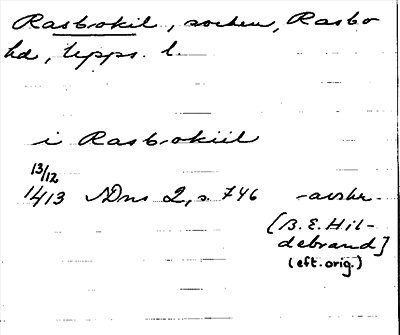 Rasbokil, socken, Rasbo
hd, Upps. l.
i Rasbokiil
13/12
1413 SDns 2, s. 746 avskr.
[B.E. Hil-
debrand]
(eft. orig.)